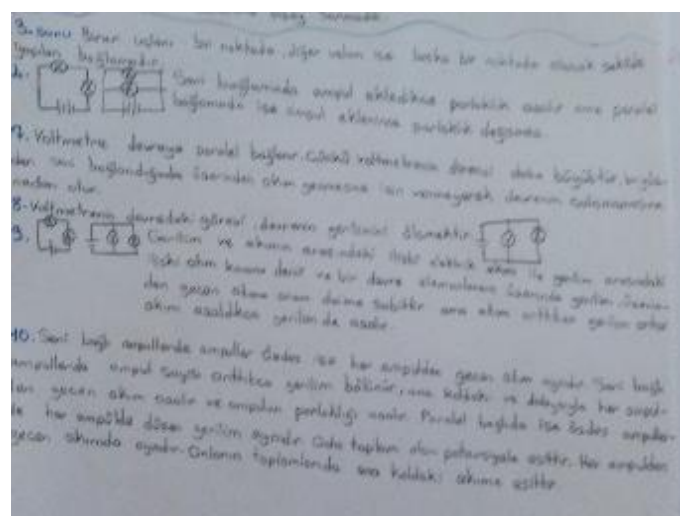 Birer uçları bir noktada, diğer uçları ise başka bir noktada olacak şekilde
yapılan bağlamadır.
Seri bağlamada ampul ekledikçe parlaklık azalır ama paralel
bağlamada ise ampul eklenirse parlaklık değişmez.
7. Voltmetre devreye paralel bağlanır. Çünkü voltmetrenin direnci daha büyüktür, bu yüz-
den seri bağlandığında üzerinden akım geçmesine izin vermeyerek devrenin çalışmamasına
neden olur.
8- Voltmetrenin devredeki görevi, devrenin gerilimini ölçmektir.
9. Gerilim ve akımın arasındaki ilişki elektrik akımı ile gerilim arasındaki
ilişki ohm kanunu denir ve bir devre elemanlarının üzerinde gerilim üzerin-
den geçen akıma oranı daima sabittir ama akım arttıkça gerilim artar
akım azaldıkça gerilim de azalır.
10. Seri bağlı ampullerde ampuller özdeş ise her ampulden geçen akım aynıdır. Seri bağlı
ampullerde ampul sayısı arttıkça gerilim bölünür, ana koldaki ve dolayısıyla her ampul-
den geçen akım azalır ve ampulün parlaklığı azalır. Paralel bağlıda ise özdeş ampuller-
de her ampulde düşen gerilim aynıdır. toplam olan potansiyele eşittir. Her ampulden
geçen akımda aynıdır. Onların toplamlarıda ana koldaki akıma eşittir.